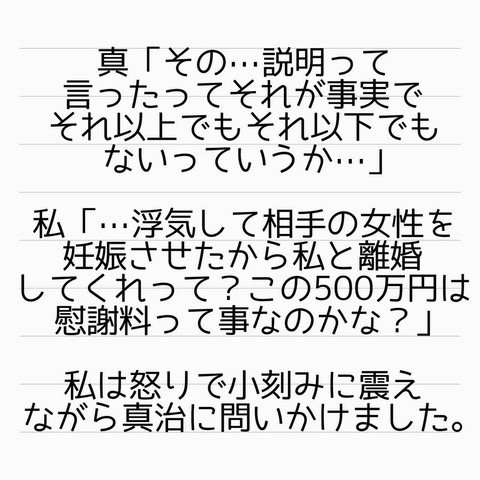 真「その…説明って
言ったってそれが事実で
それ以上でもそれ以下でも
ないっていうか…」
私「…浮気して相手の女性を
妊娠させたから私と離婚
してくれって？この500万円は
慰謝料って事なのかな？」
私は怒りで小刻みに震え
ながら真治に問いかけました。